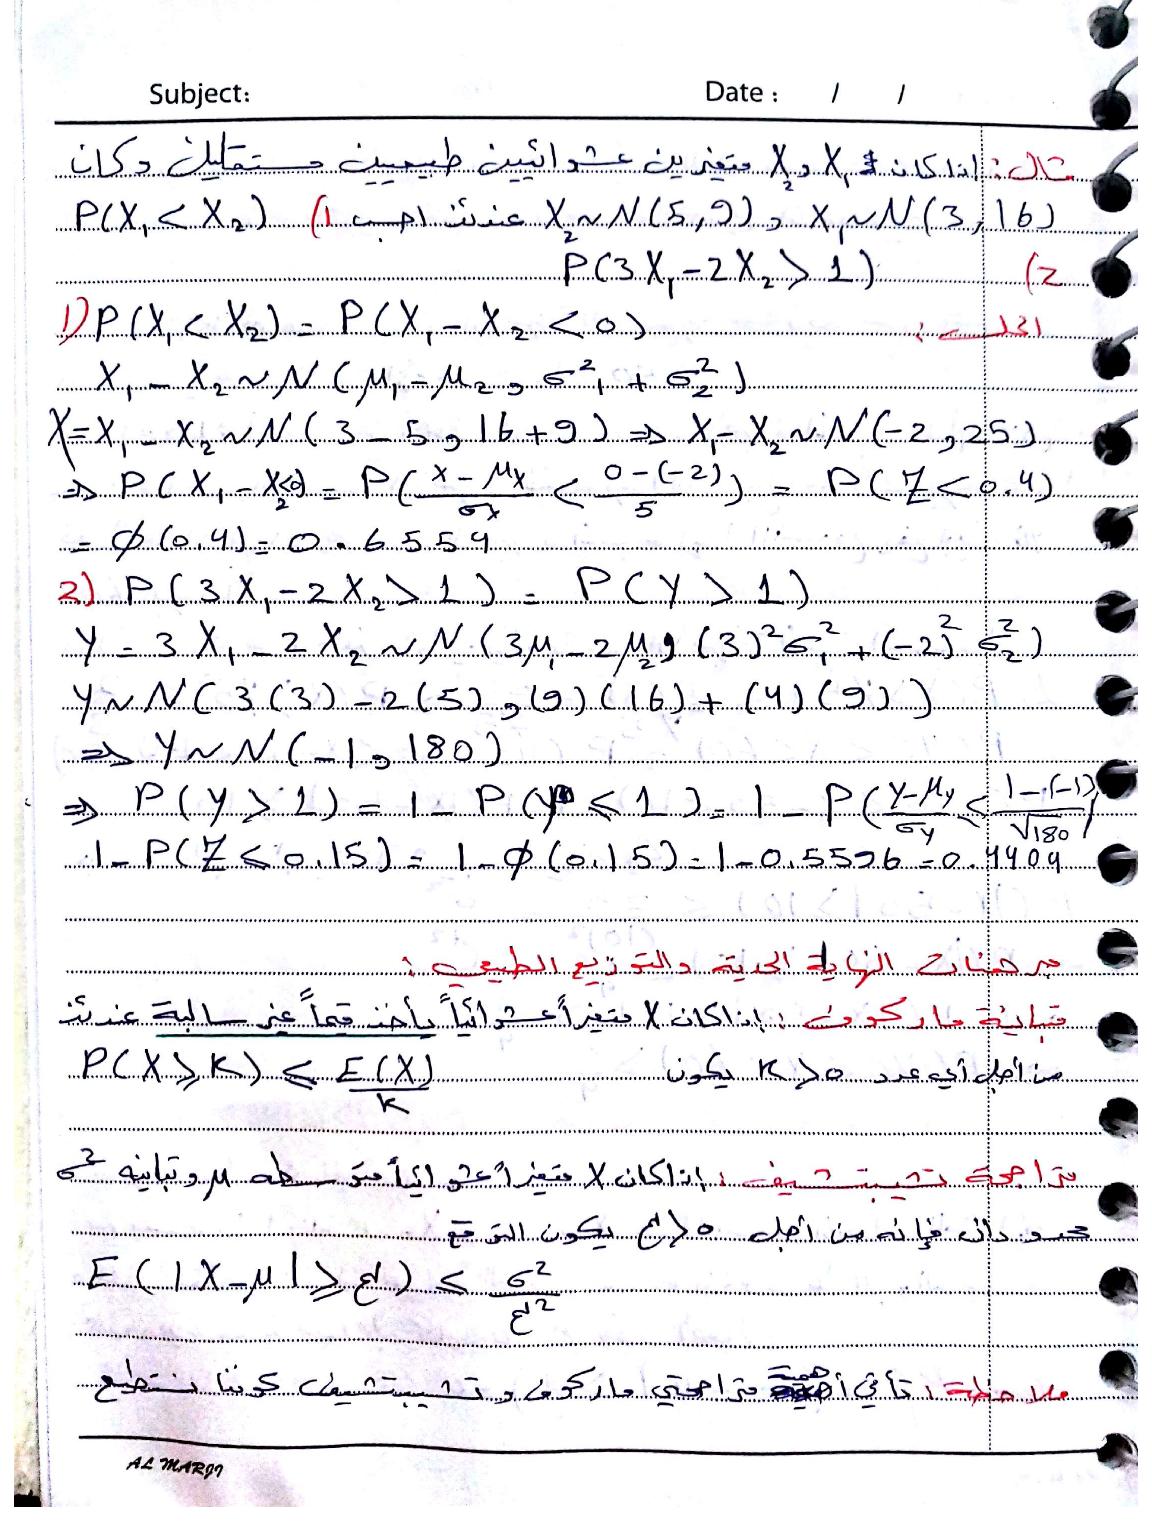 Subject: Date : / /
مثال: إذا كان X₁ و X₂ متغيرين عشوائيين طبيعيين مستقلين وكان
X₁ ~ N(3, 16) و X₂ ~ N(5, 9) عندئذ احسب 1) P(X₁ < X₂)
2) P(3X₁ - 2X₂ > 1)
الحل :
1) P(X₁ < X₂) = P(X₁ - X₂ < 0)
X₁ - X₂ ~ N(μ₁ - μ₂, σ²₁ + σ²₂)
X = X₁ - X₂ ~ N(3 - 5, 16 + 9) ⇒ X₁ - X₂ ~ N(-2, 25)
⇒ P(X₁ - X₂ < 0) = P((X - μx)/σx < (0 - (-2))/5) = P(Z < 0.4)
= φ(0.4) = 0.6554
2) P(3X₁ - 2X₂ > 1) = P(Y > 1)
Y = 3X₁ - 2X₂ ~ N(3μ₁ - 2μ₂, (3)²σ₁² + (-2)²σ₂²)
Y ~ N(3(3) - 2(5), (9)(16) + (4)(9))
⇒ Y ~ N(-1, 180)
⇒ P(Y > 1) = 1 - P(Y ≤ 1) = 1 - P((Y - μy)/σy ≤ (1 - (-1))/√180)
1 - P(Z ≤ 0.15) = 1 - φ(0.15) = 1 - 0.5596 = 0.4404
مبرهنات النهاية الحدية والتوزيع الطبيعي :
متباينة ماركوف : إذا كان X متغيراً عشوائياً يأخذ قيماً غير سالبة عندئذ
من أجل أي عدد K > 0 يكون P(X ≥ K) ≤ E(X)/K
متراجحة تشيبتشيف : إذا كان X متغيراً عشوائياً متوسطه μ وتباينه σ²
محدودان فإنه من أجل ع > 0 يكون التوقع
E(|X - μ| ≥ ع) ≤ σ²/ع²
ملاحظة : تأتي أهمية متراجحتي ماركوف وتشيبتشيف كوننا نستطيع
AL MARJI